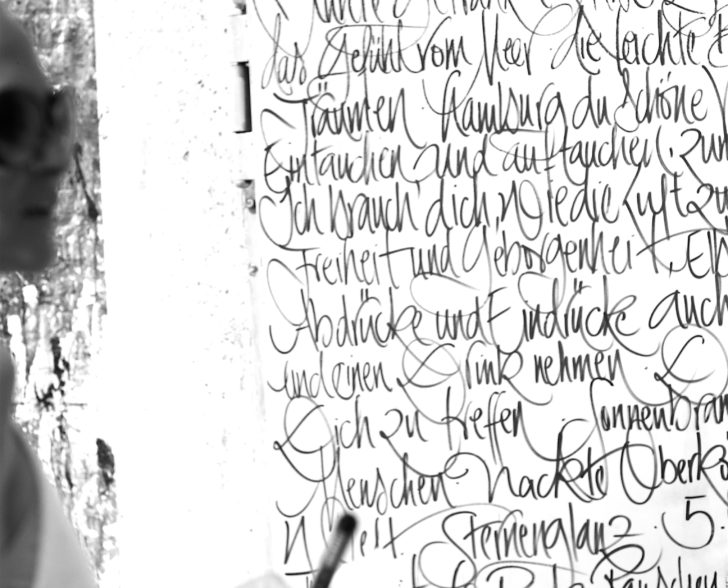 das Gefühl vom Meer die leichte
Träumen Hamburg du schöne
Eintauchen und auftauchen. Zum
Ich brauch dich, Wie die Luft zu
Freiheit und Geborgenheit, Elb
Abdrücke und Eindrücke auch
und einen Drink nehmen
Dich zu treffen Sonnenbran
Menschen Nackte Oberkö
Welt Sternenglanz 5.